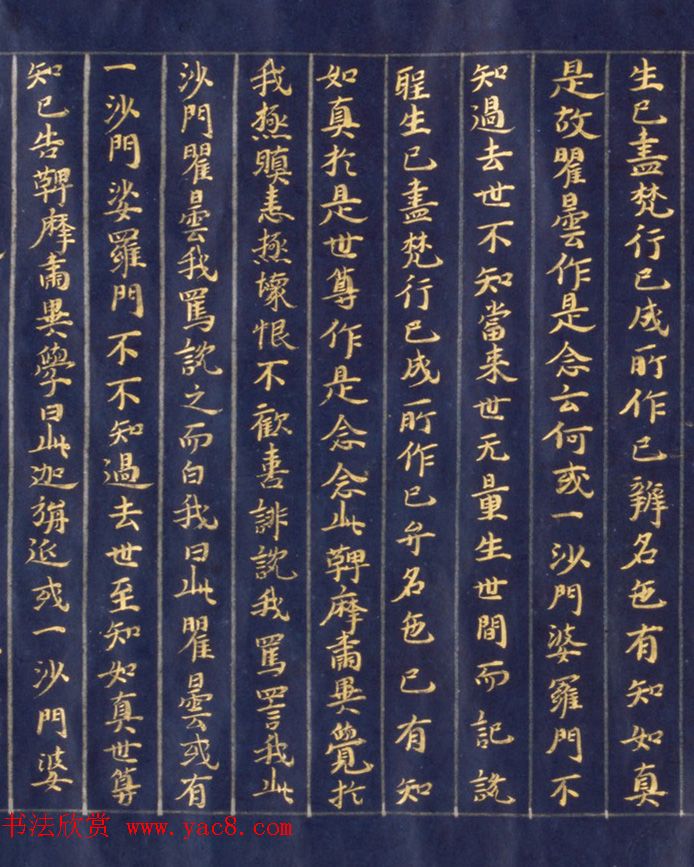 生已盡梵行已成所作已辦名色有知如真
是故瞿曇作是念云何或一沙門婆羅門不
知過去世不知當来世无量生世間而記說
耶生已盡梵行已成所作已弁名色已有知
如真於是世尊作是念念此鞞摩肅異覺於
我極瞋恚極壞恨不歡喜誹說我罵詈我此
沙門瞿曇我罵說之而白我曰此瞿曇或有
一沙門娑羅門不不知過去世至知如真世尊
知已告鞞摩肅異學曰此迦旃延或一沙門婆
书法欣赏 www.yac8.com